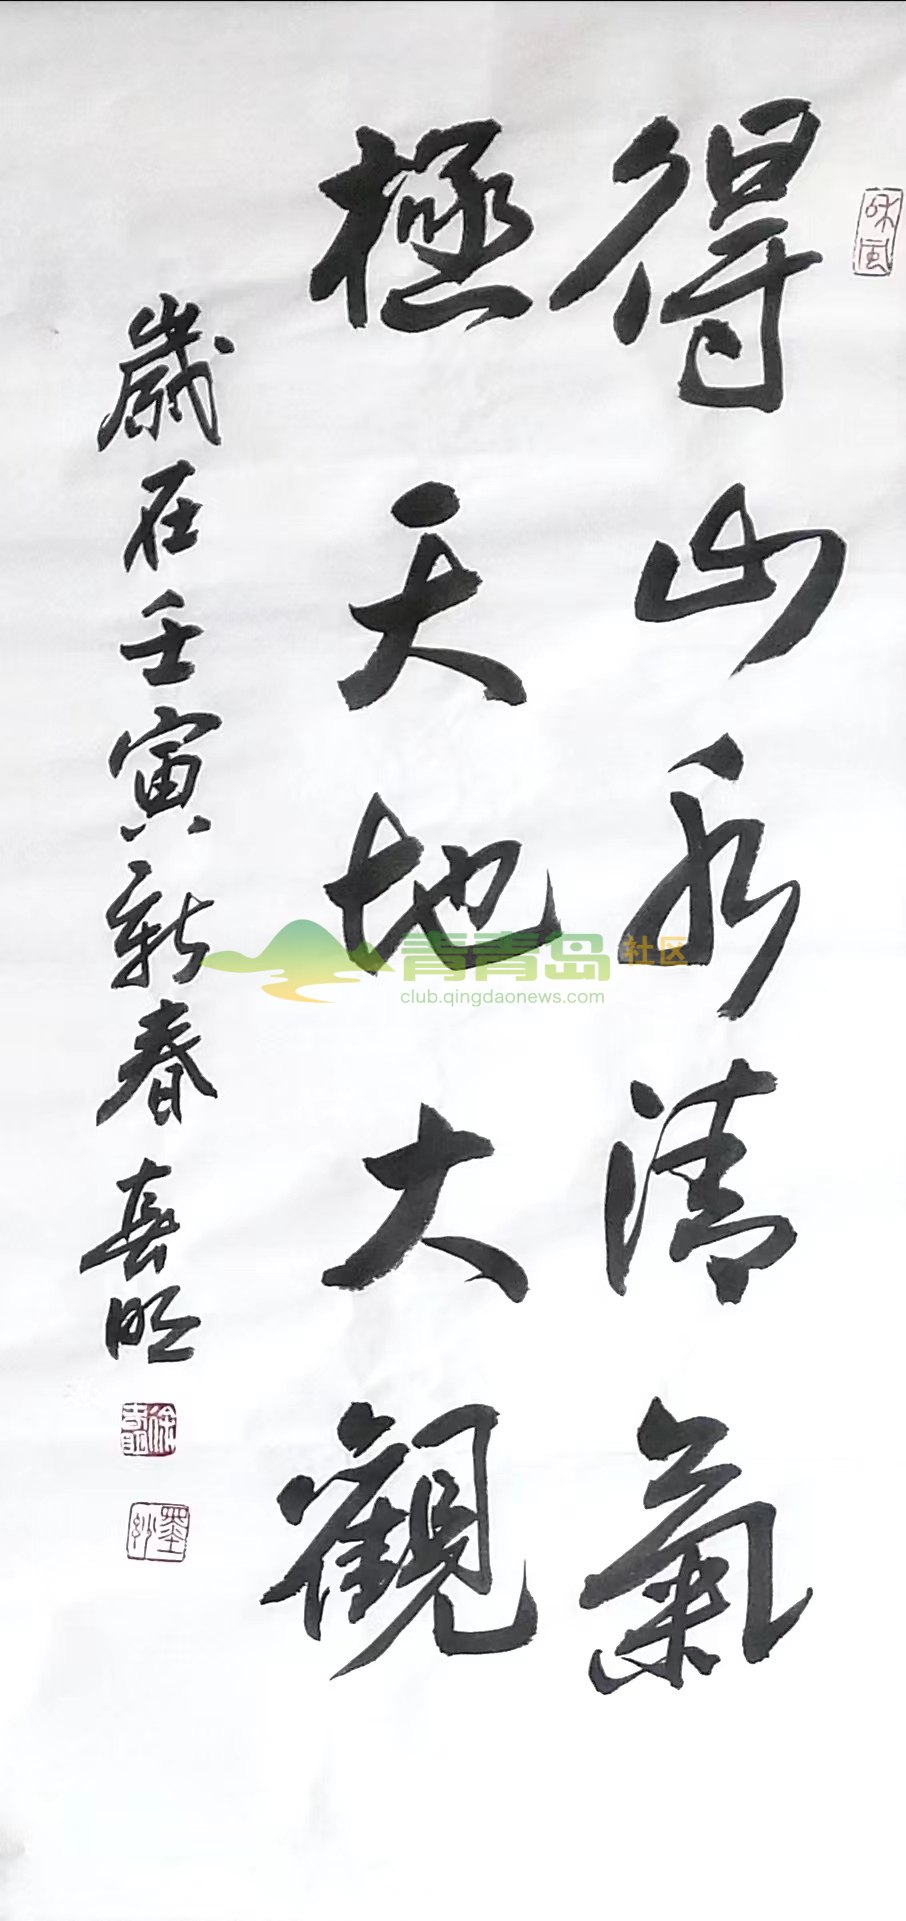 得山水清氣
極天地大觀
歲在壬寅新春喜明
青青岛社区
club.qingdaonews.com